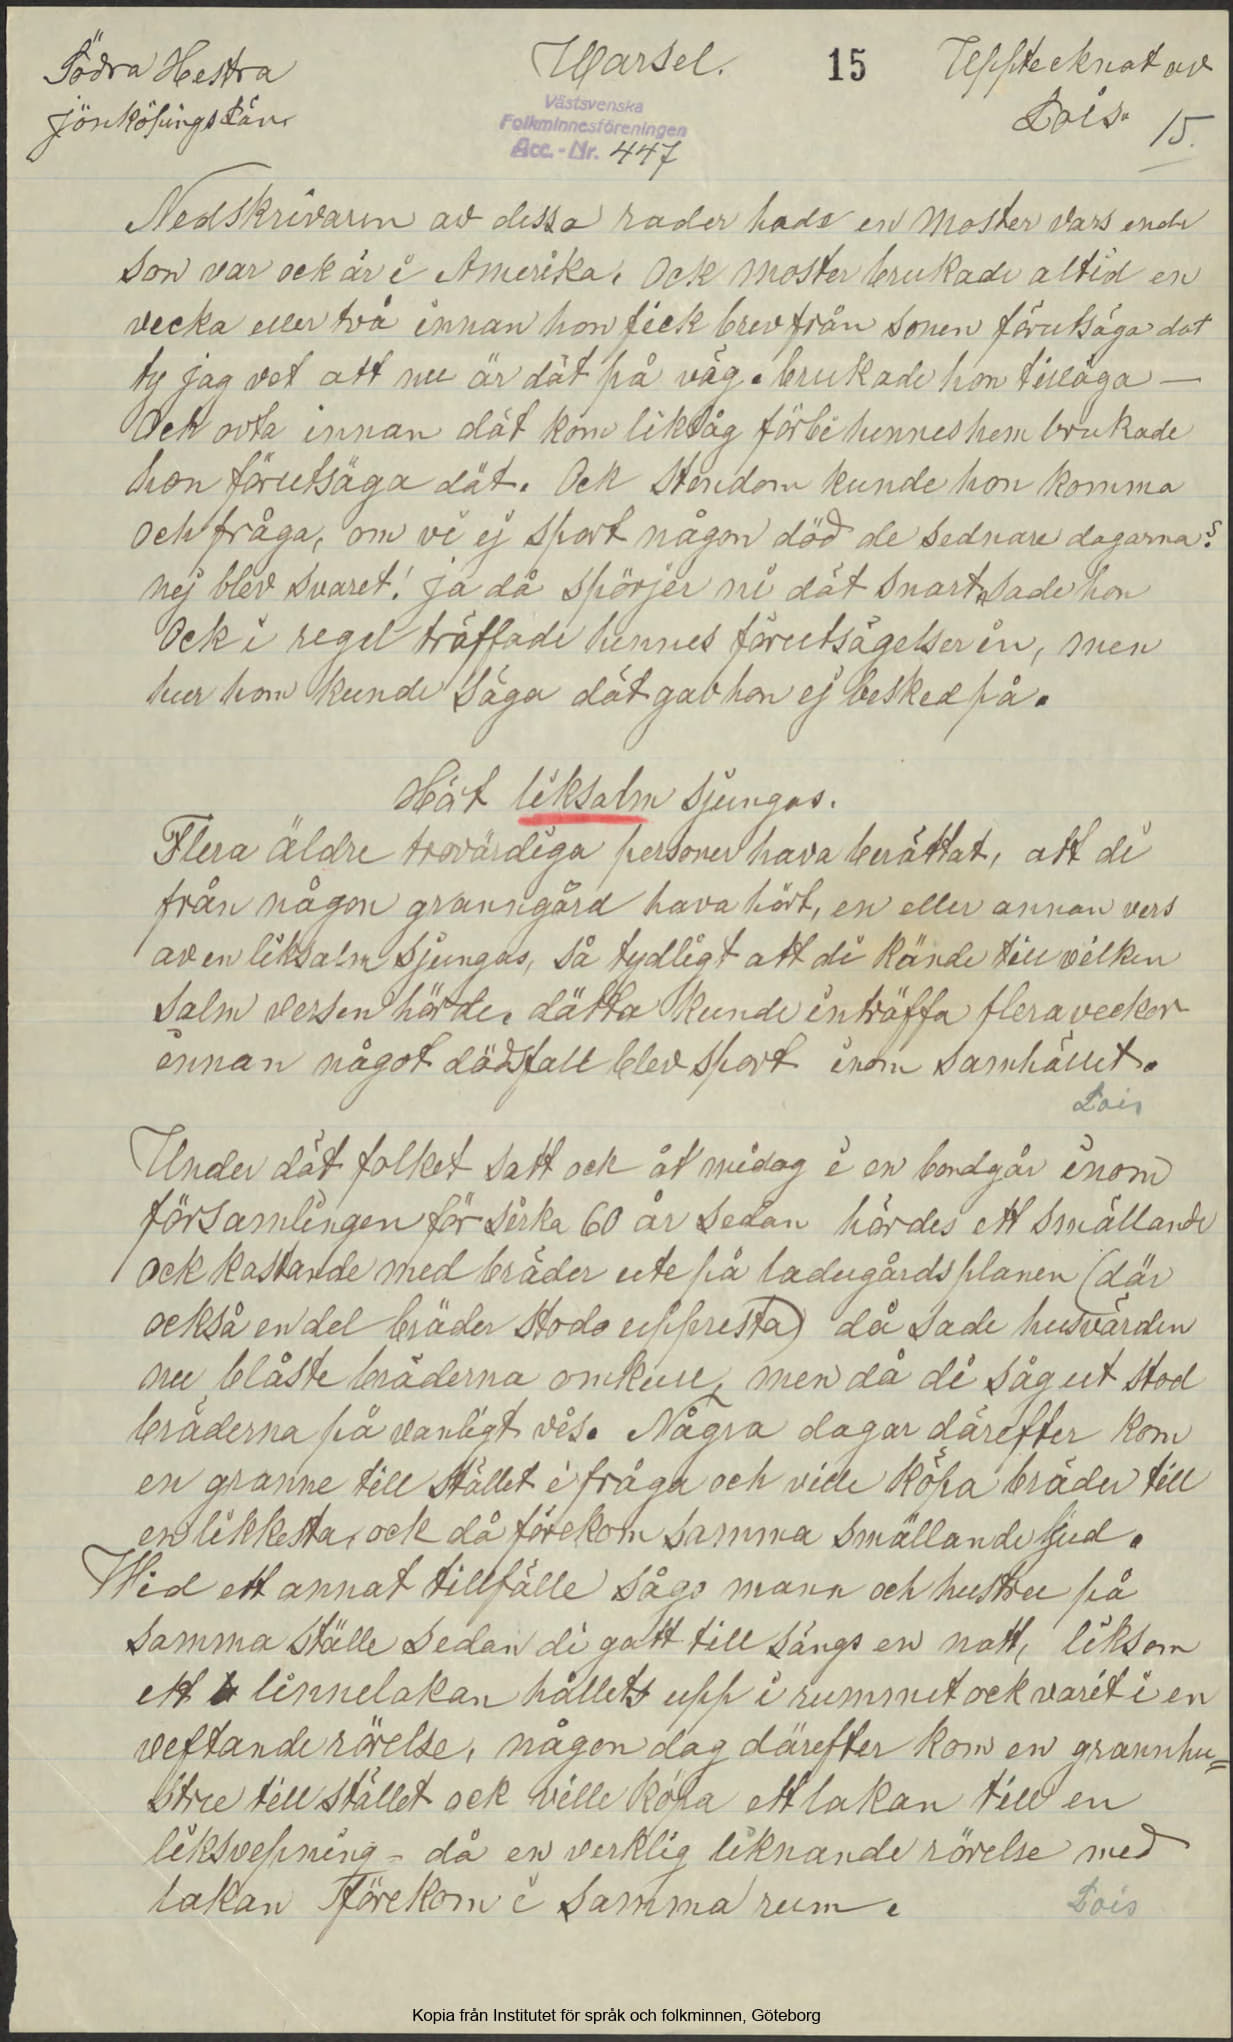 Södra Hestra
Jönköpings Län.
Warsel.
15
Upptecknat av
Lois.
15.
Västsvenska
Folkminnesföreningen
Acc.-Nr. 447
Nedskrivaren av dessa rader hade en moster vars ende
son var ock är i Amerika. Ock moster brukade altid en
vecka eller två innan hon fick brev från sonen förutsäga dat
ty jag vet att nu är dät på väg. brukade hon tilläga —
Ock ovta innan dät kom liktåg förbi hennes hem brukade
hon förutsäga dät. Ock stondom kunde hon komma
och fråga, om vi ej sport någon död de sednare dagarna?
nej blev svaret! ja då spörjer ni dät snart, sade hon
Ock i regel träffade hennes förutsägelser in, men
hur hom kunde säga dät gav hon ej besked på.
Hört liksalm sjungas.
Flera äldre trovärdiga personer hava berättat, att di
från någon granngård hava hört, en eller annan vers
av en liksalm sjungas, så tydligt att di kände till vilken
salm versen hörde. dätta kunde inträffa flera veckor
innan något dödsfall blev sport inom samhället.
Lois
Under dät folket satt ock åt midag i en bondgår inom
församlingen för sirka 60 år sedan hördes ett smällande
ock kastande med bräder ute på ladugårdsplanen (där
också en del bräder stodo uppresta) då sade husvärden
nu blåste bräderna omkull, men då di såg ut stod
bräderna på vanligt vis. Några dagar därefter kom
en granne till stället i fråga och ville köpa bräder till
en likkesta, ock då förekom samma smällande ljud.
Wid ett annat tillfälle sågo mann och hustru på
samma ställe sedan di gott till sängs en natt, liksom
ett linnelakan hållets upp i rummet ock varit i en
veftande rörelse, någon dag därefter kom en grannhu=
stru till stället ock ville köpa ett lakan till en
liksvepning - då en verklig liknande rörelse med
lakan förekom i samma rum.
Lois
Kopia från Institutet för språk och folkminnen, Göteborg